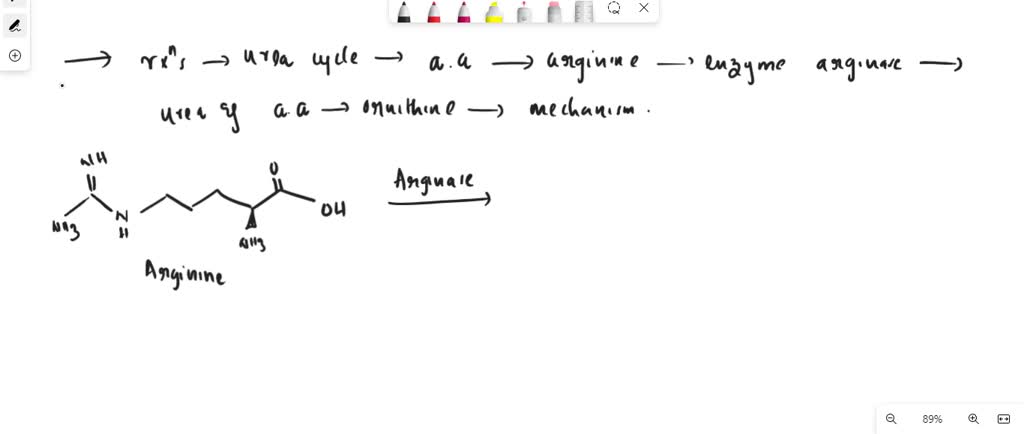 → rxⁿs → urea cycle → a.a → arginine → enzyme arginase →
urea & a.a → ornithine → mechanism.
NH
O
Arginase
OH
N
H
NH3
NH3
Arginine
89%